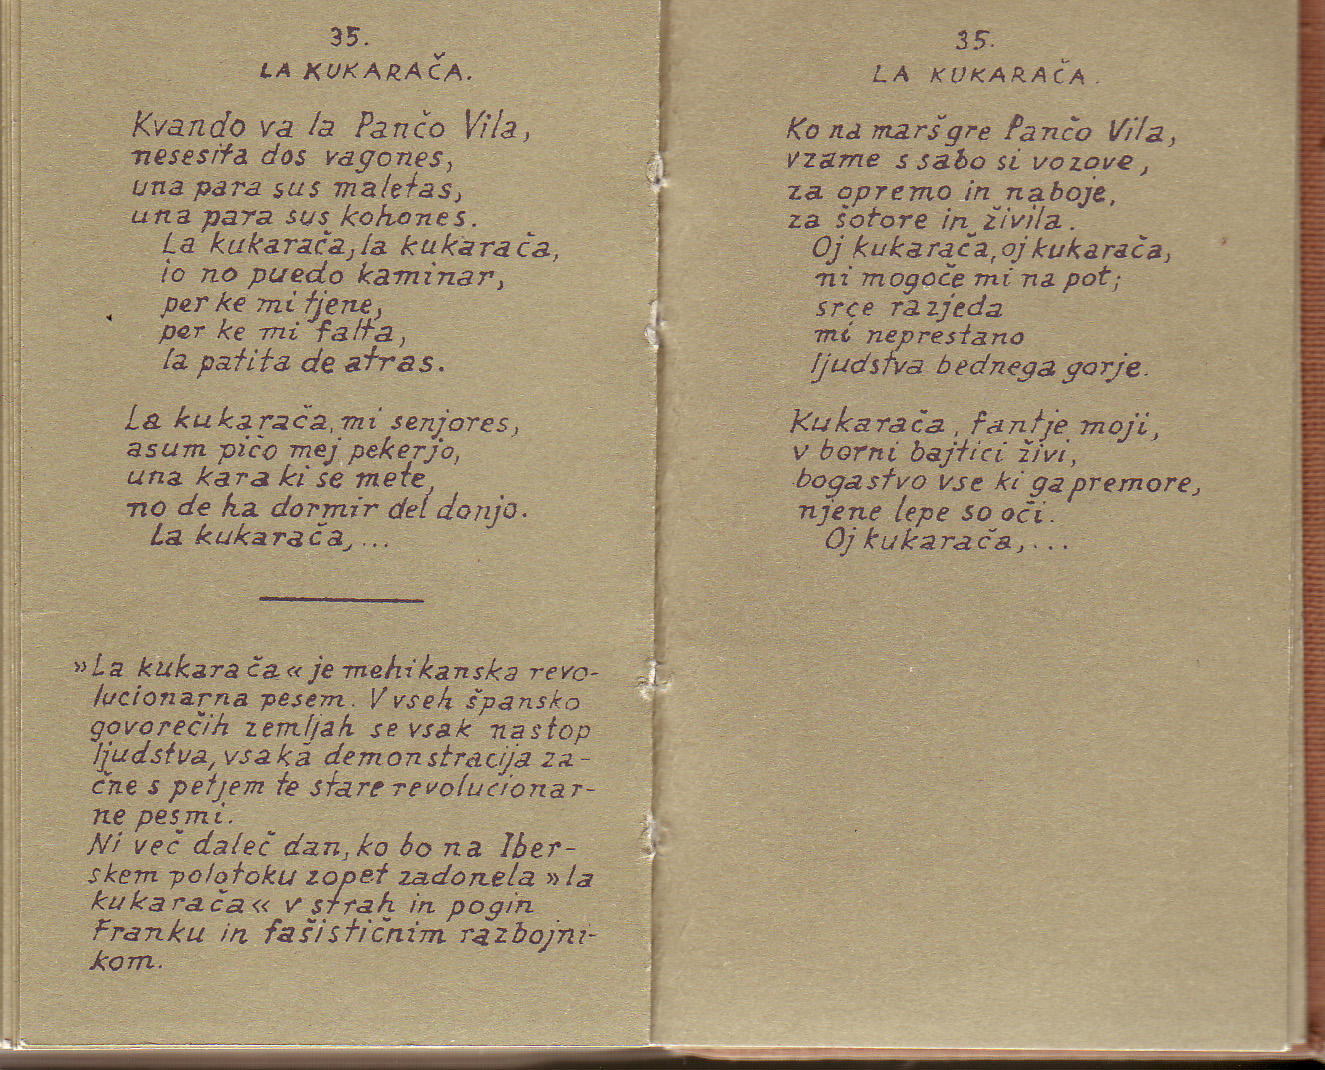 35.
LA KUKARAČA.
Kvando va la Pančo Vila,
nesesita dos vagones,
una para sus maletas,
una para sus kohones.
La kukarača, la kukarača,
io no puedo kaminar,
per ke mi tjene,
per ke mi falta,
la patita de atras.
La kukarača, mi senjores,
asum pičo mej pekerjo,
una kara ki se mete,
no de ha dormir del donjo.
La kukarača, ...
»La kukarača« je mehikanska revo-
lucionarna pesem. V vseh špansko
govorečih zemljah se vsak nastop
ljudstva, vsaka demonstracija za-
čne s petjem te stare revolucionar-
ne pesmi.
Ni več daleč dan, ko bo na Iber-
skem polotoku zopet zadonela »la
kukarača« v strah in pogin
Franku in fašističnim razbojni-
kom.
35.
LA KUKARAČA.
Ko na marš gre Pančo Vila,
vzame s sabo si vozove,
za opremo in naboje,
za šotore in živila.
Oj kukarača, oj kukarača,
ni mogoče mi na pot;
srce razjeda
mi neprestano
ljudstva bednega gorje.
Kukarača, fantje moji,
v borni bajtici živi,
bogastvo vse ki ga premore,
njene lepe so oči.
Oj kukarača, ...